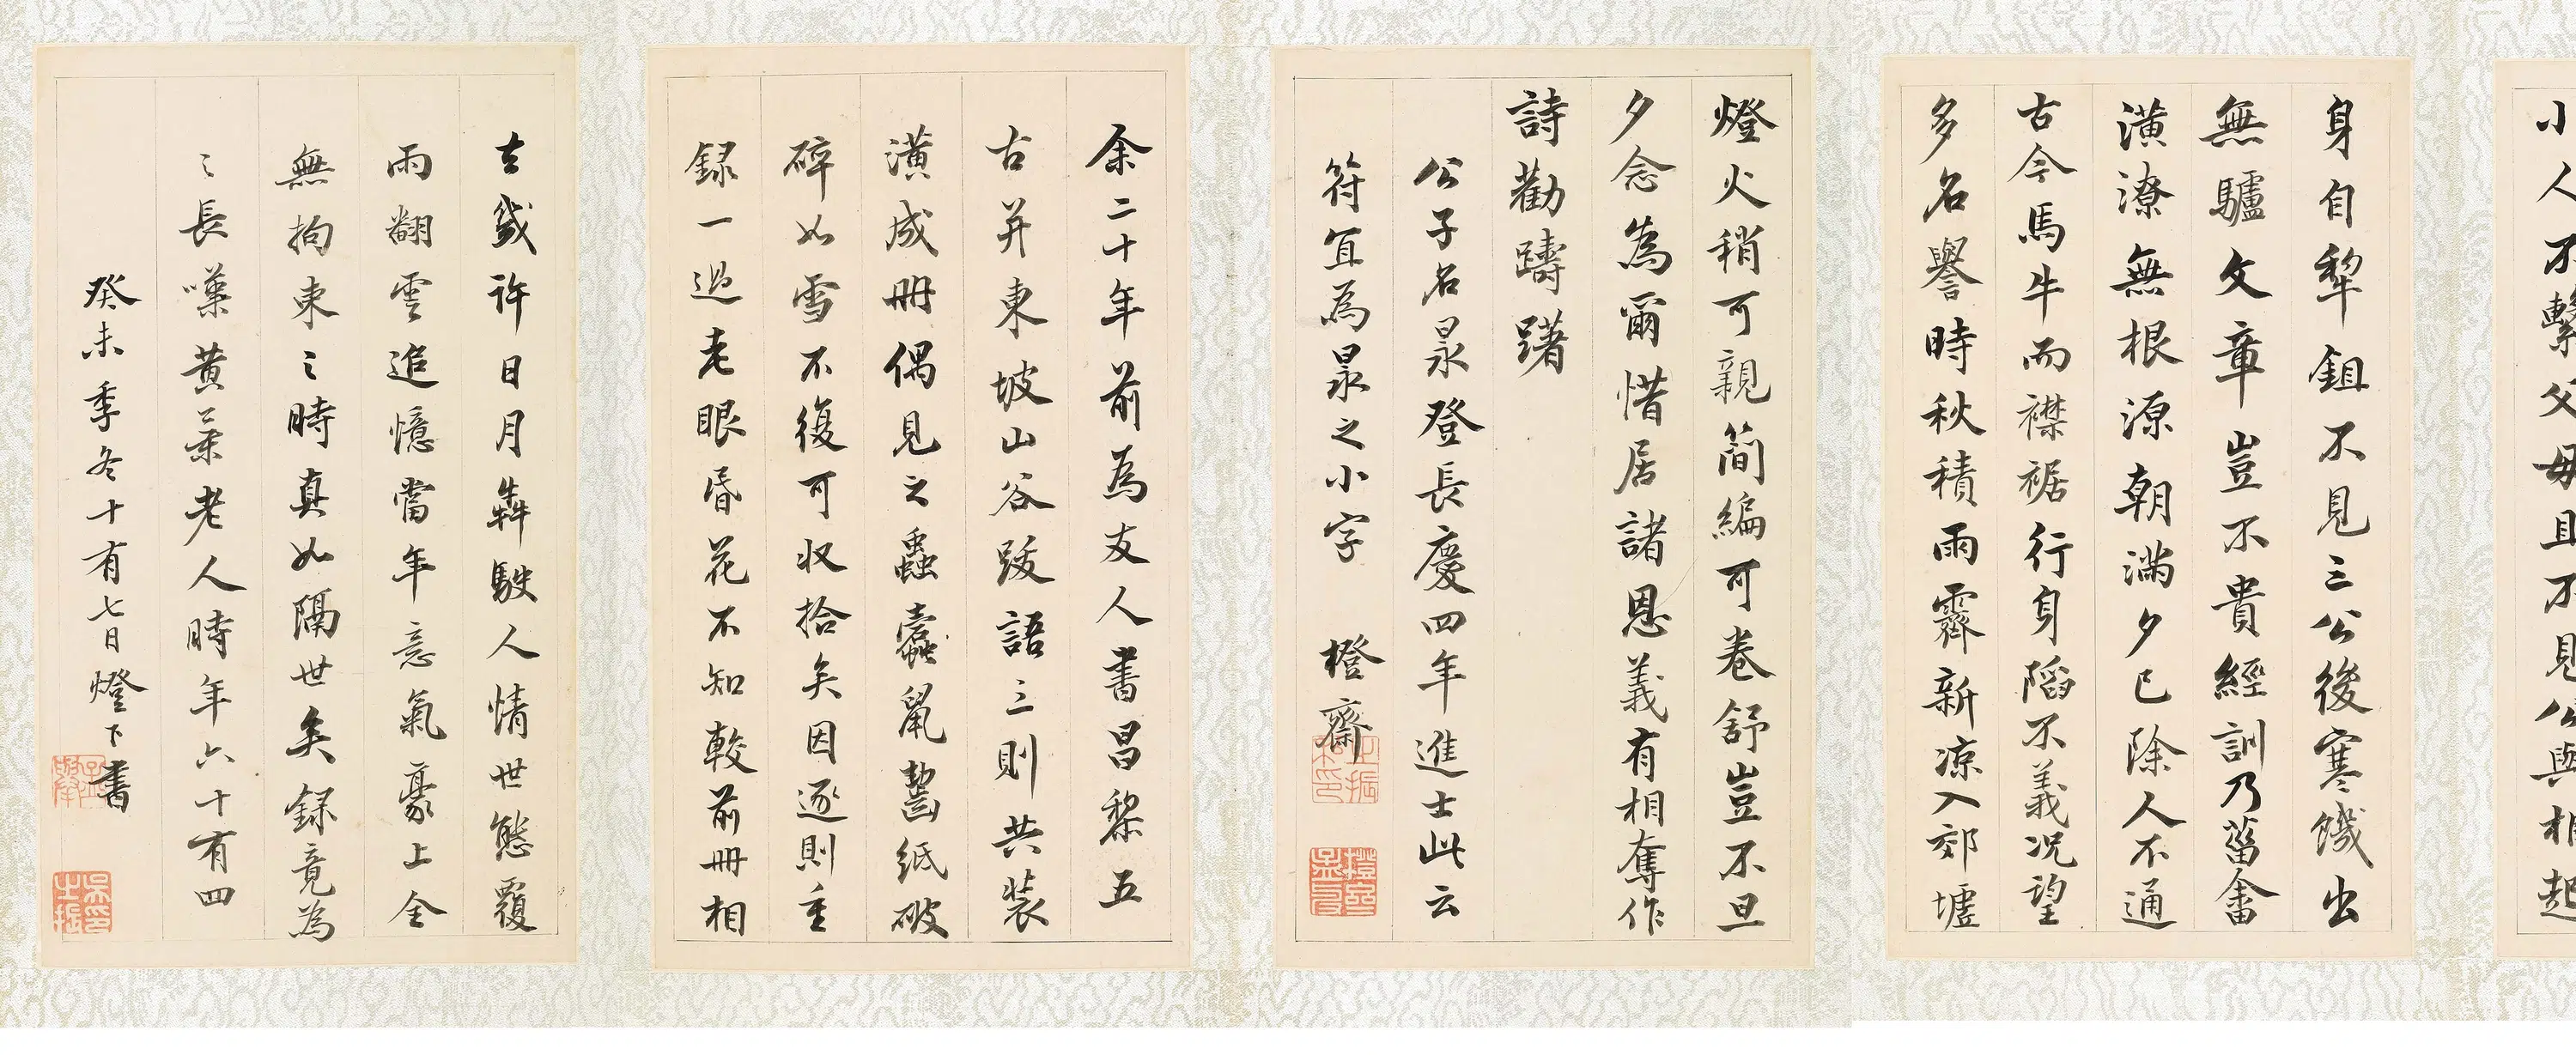 小人不繫父母且不見公與相起
身自犂鉏不見三公後寒饑出
無驢文章豈不貴經訓乃菑畬
潢潦無根源朝滿夕已除人不通
古今馬牛而襟裾行身陷不義況望
多名譽時秋積雨霽新涼入郊墟
燈火稍可親簡編可卷舒豈不旦
夕念為爾惜居諸恩義有相奪作
詩勸躊躇
公子名㫤登長慶四年進士此云
符宜為㫤之小字
橙齋
余二十年前為友人書昌黎五
古并東坡山谷跋語三則共裝
潢成冊偶見之蟲蠹鼠齧紙破
碎如雪不復可收拾矣因逐則重
錄一過老眼昏花不知較前冊相
去幾許日月犇駛人情世態覆
雨翻雲追憶當年意氣豪上全
無拘束之時真如隔世矣錄竟為
之長嘆黃葉老人時年六十有四
癸未季冬十有七日燈下書